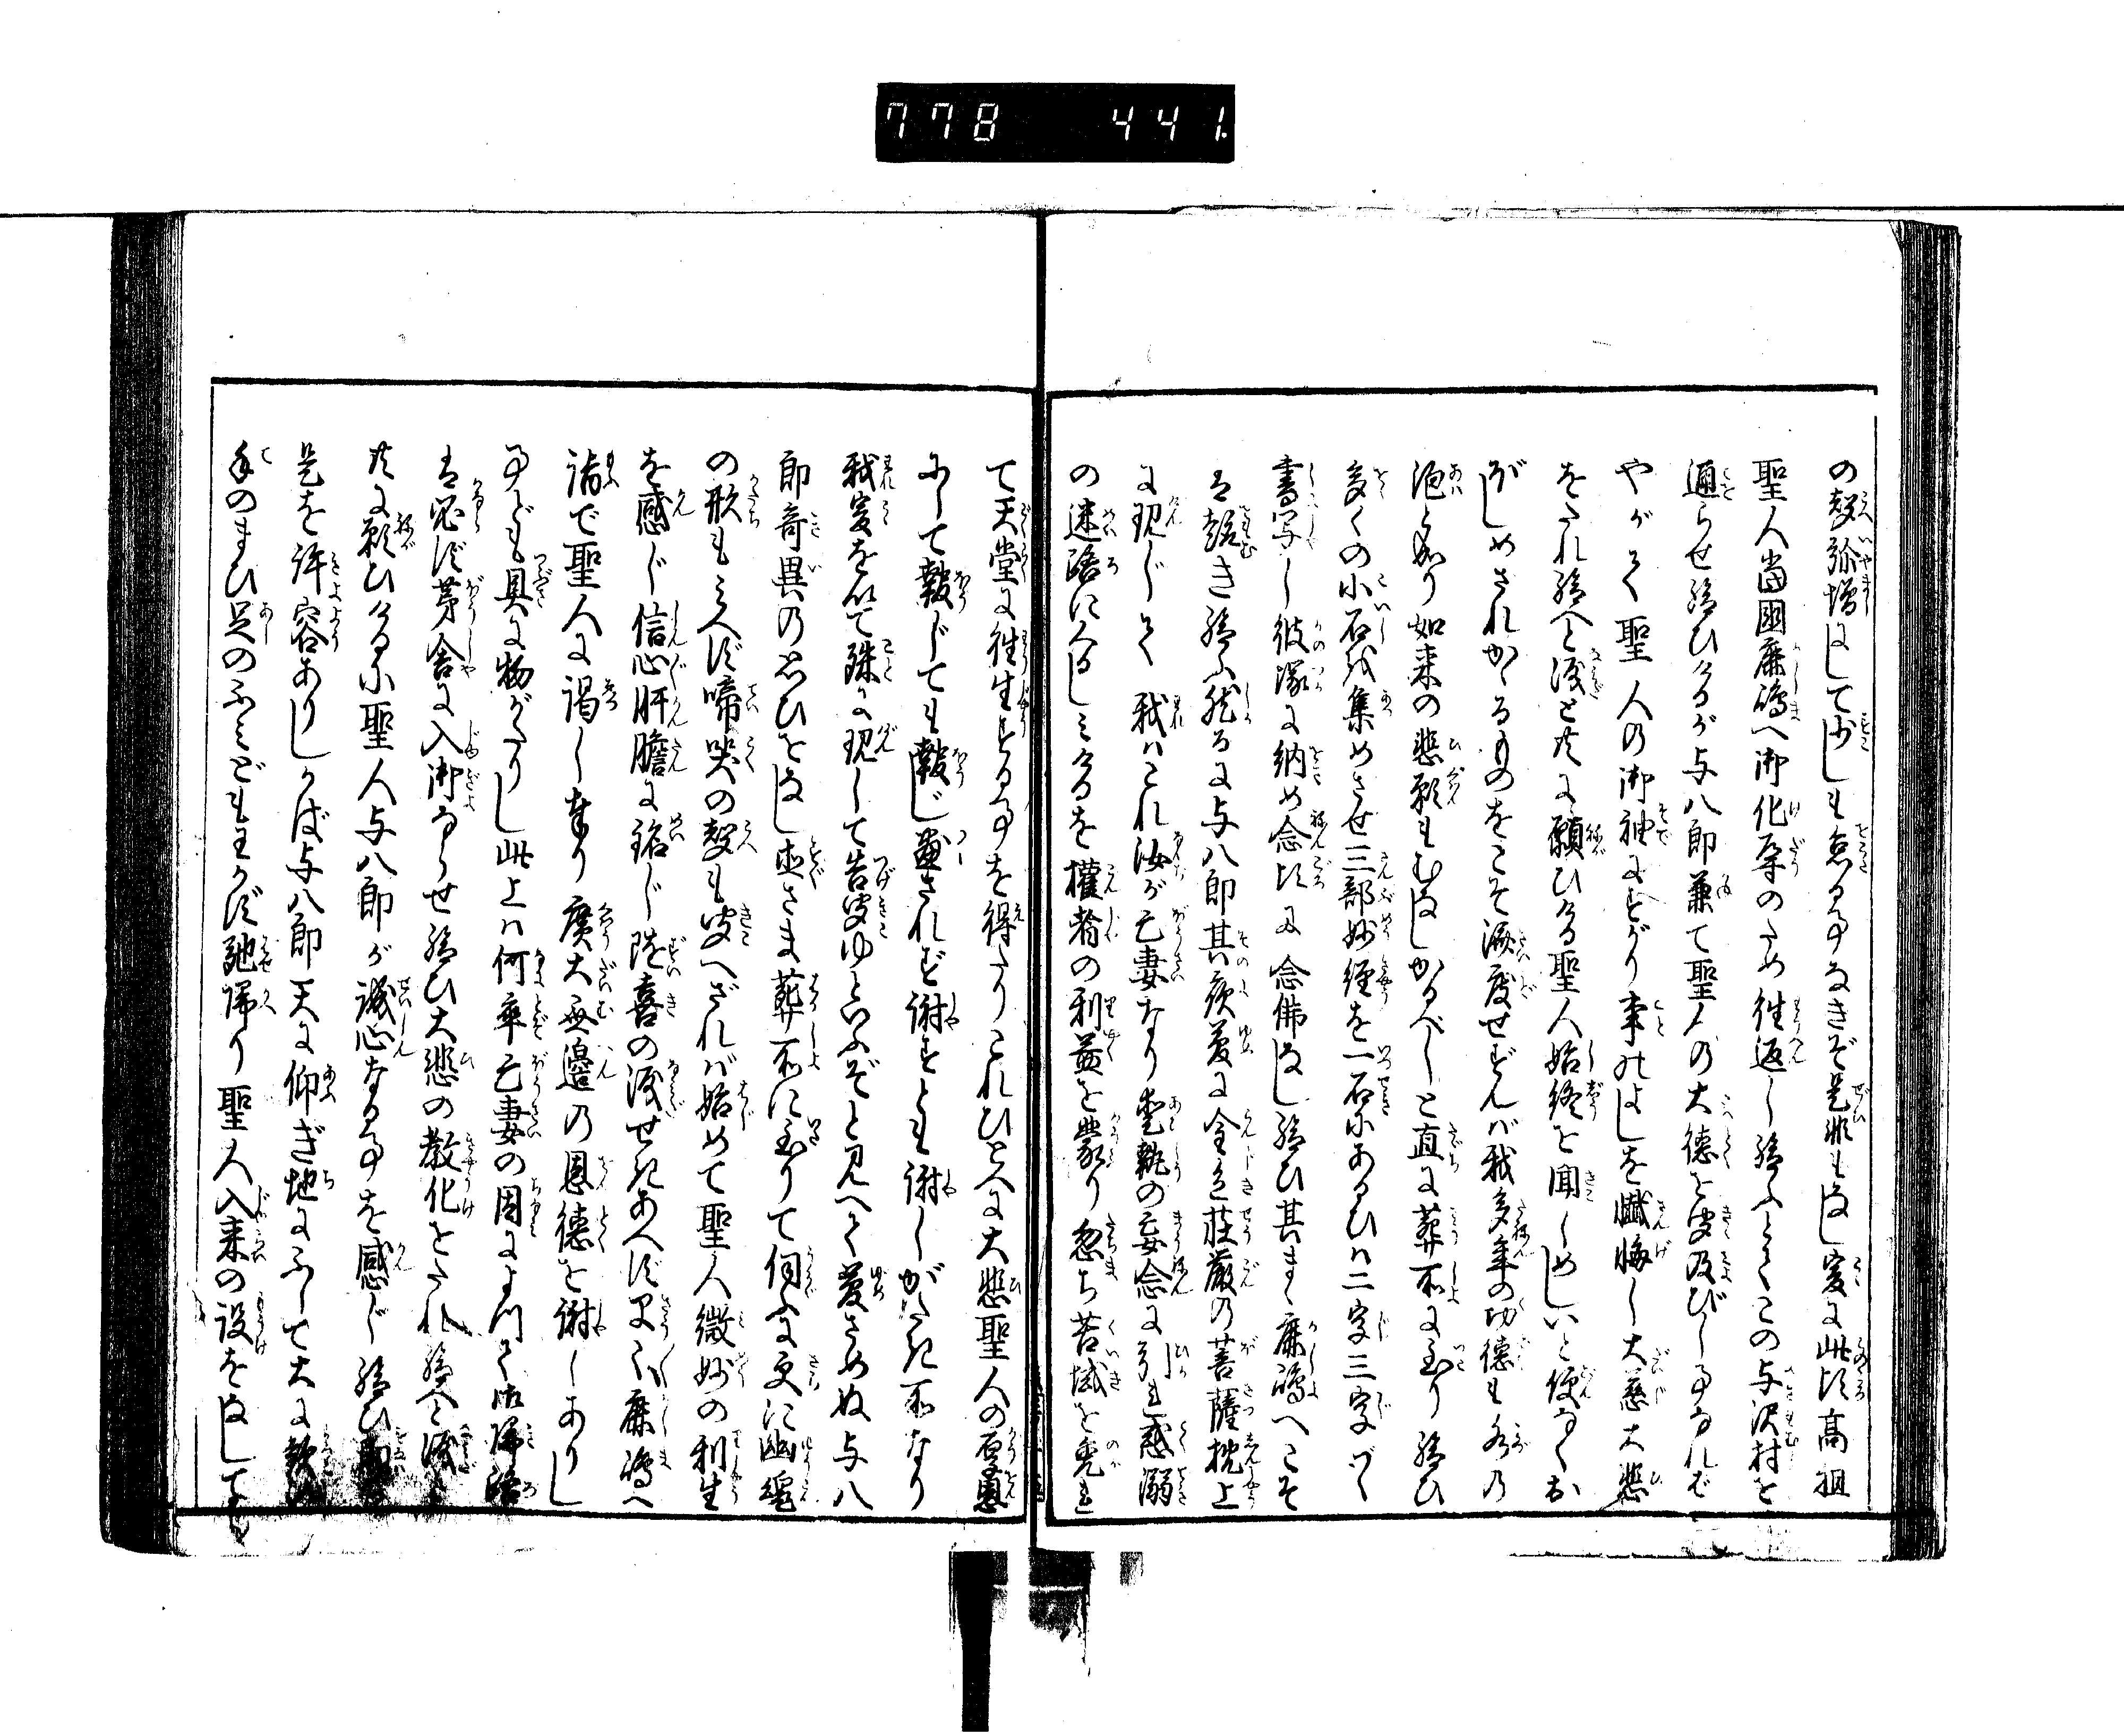 778 441
の声弥増にして少しも怠る事なきぞ是非もなし爰に此頃高祖
聖人当国鹿嶋へ御化導のため往返し給ふとてこの与沢村を
通らせ給ひけるが与八郎兼て聖人の大徳を聞及びし事なれば
やがて聖人の御袖にすがり事のよしを懺悔し大慈大悲
をたれ給へと涙と共に願ひける聖人始終を聞しめしいと便なくお
ぼしめされかゝるものをこそ済度せずんば我多年の功徳も水の
泡となり如来の悲願もむなしかるべしと直に葬所に至り給ひ
多くの小石を集めさせ三部妙経を一石にあるひは二字三字づゝ
書写し彼塚に納め念頃に念佛なし給ひ其まゝ鹿嶋へこそ
は赴き給ふ然るに与八郎其夜夢に金色荘厳の菩薩枕上
に現じて我はこれ汝が亡妻なり愛執の妄念に引れ惑溺
の迷路に入しみけるを権者の利益を蒙り忽ち苦域を免れ
て天堂に往生する事を得たりこれひとへに大悲聖人の厚恩
にして報じても報じ尽されず謝すとも謝しがたき所なり
我爰を以て殊に現じて告聞ゆといふぞと見へて夢さめぬ与八
郎奇異の思ひをなし直さま葬所に至りて伺ふに更に幽魂
の形もみへず啼哭の声も聞へざれば始めて聖人微妙の利生
を感じ信心肝膽に銘じ随喜の涙せきあへず早々鹿嶋へ
詣で聖人に謁し奉り廣大無邊の恩徳を謝しありし
事ども具に物がたりし此上は何卒亡妻の因によつて御帰路
は必ず茅舎に入御ならせ給ひ大悲の教化をたれ給へと涙と
共に願ひけるに聖人与八郎が誠心なる事を感じ給ひ
是を許容ありしかば与八郎天に仰ぎ地にふして大に歓び
手のまひ足のふみどもわかず馳帰り聖人入来の設をなしてぞ